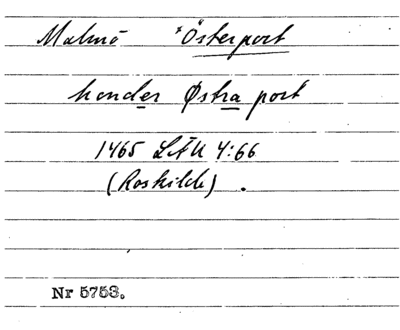 Malmö *Österport
hender Østra port
1465 LÄU 4:66
(Roskilde).
Nr 5753.